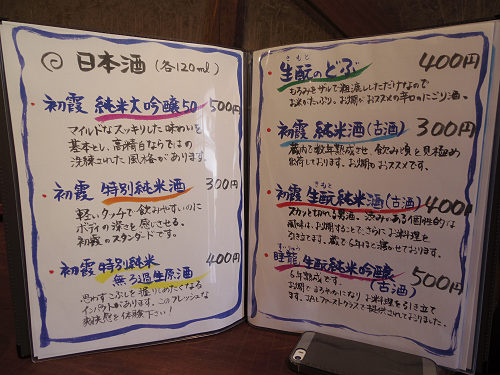 日本酒 (各120ml)
・初霞 純米大吟醸50 500円
マイルドなスッキリした味わいを
基本とし、高精白ならではの
洗練された風格があります。
・初霞 特別純米酒 300円
軽いタッチで飲みやすいのに
ボディの深さを感じさせる
初霞のスタンダードです。
初霞 特別純米 400円
無ろ過生原酒
思わずこぶしを握りしめたくなる
インパクトがあります。このフレッシュな
を体験下さい!
きもと
・生酛のどぶ 400円
もろみをザルで粗濾ししただけなので
お米がたっぷり。お燗がおススメの辛口にごり酒。
・初霞 純米酒(古酒) 300円
蔵内で数年熟成させ、飲み頃を見極め
出荷しております。お燗もおススメです。
きもと
・初霞 生酛純米酒(古酒) 400円
スカッと切れる男酒。渋みある個性的な
風味は、お燗することで、さらにお料理を
引き立てます。蔵で6年ほど寝かせております。
すいりゅう
・睡龍 生酛純米吟醸 500円
(古酒)
6年熟成です。
お燗でまろやかになり お料理を引き立て
ます。JALファーストクラスで提供されておりました。